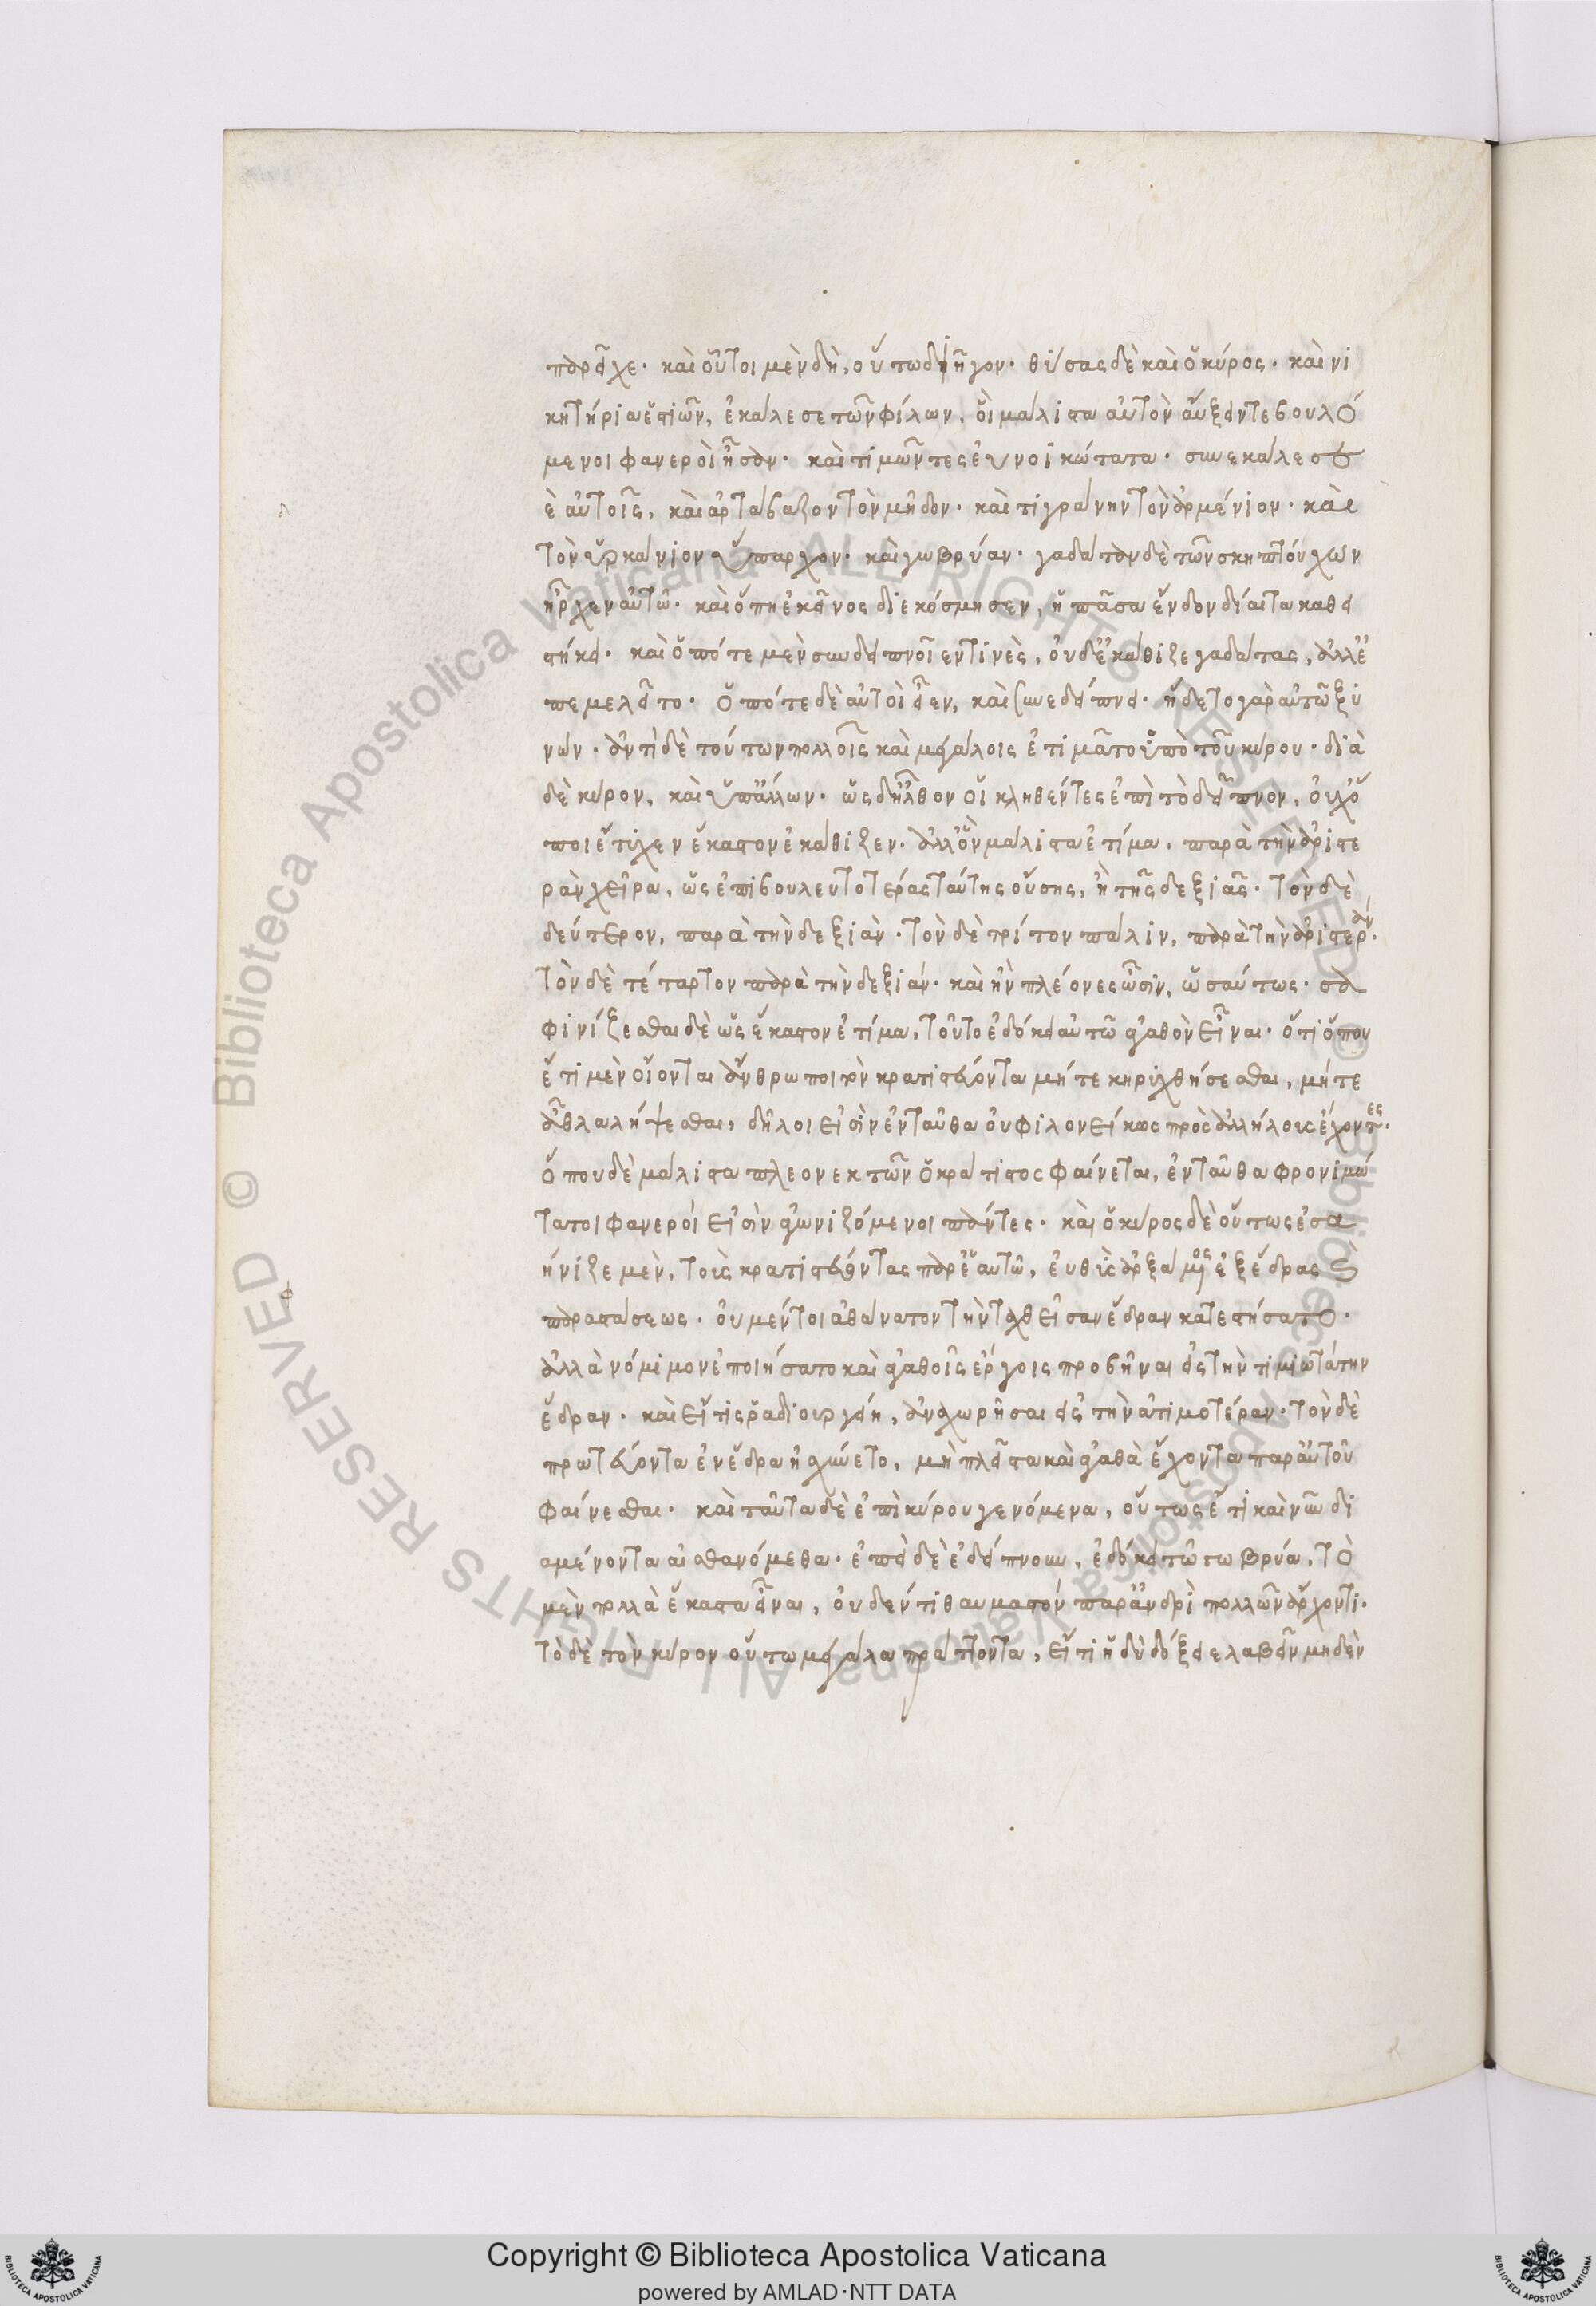 παρεῖχε· καὶ οὗτοι μὲν δὴ, οὕτω διῆγον· θύσας δὲ καὶ ὁ κύρος· καὶ νι
κητήρια ἑστιῶν, ἐκάλεσε τῶν φίλων, οἳ μάλιστα αὐτὸν αὔξειν τε βουλό
μενοι φανεροὶ ἦσαν· καὶ τιμῶντες εὐνοϊκώτατα· συνεκάλεσε
δὲ αὐτοῖς, καὶ ἀρτάβαζον τὸν μῆδον· καὶ τιγράνην τὸν ἀρμένιον· καὶ
τὸν ὑρκάνιον ὕπαρχον· καὶ γωβρύαν· γαδάταν δὲ τῶν σκηπτούχων
ἦρχεν αὐτῶ· καὶ ὅπη ἐκεῖνος διεκόσμησεν, ἡ πᾶσα ἔνδον δίαιτα καθει
στήκει· καὶ ὁπότε μὲν συνδειπνοῖεν τινὲς, οὐδὲ ἐκάθιζε γαδάτας, ἀλλ' ἐ
πεμελεῖτο· ὁπότε δὲ αὐτοὶ εἶεν, καὶ συνεδείπνει· ἥδετο γὰρ αὐτῶ ξυ
νών· ἀντὶ δὲ τούτων πολλοῖς καὶ μεγάλοις ἐτιμᾶτο ὑπὸ τοῦ κύρου· διὰ
δὲ κύρον, καὶ ὑπ' ἄλλων· ὡς δ' ἦλθον οἱ κληθέντες ἐπὶ τὸ δεῖπνον, οὐχ ὅ
ποι ἔτυχεν ἕκαστον ἐκάθιζεν· ἀλλ' ὃν μάλιστα ἐτίμα, παρὰ τὴν ἀριστε
ρὰν χεῖρα, ὡς ἐπιβουλευτοτέρας ταύτης οὔσης, ἢ τῆς δεξιᾶς· τὸν δὲ
δεύτερον, παρὰ τὴν δεξιὰν· τὸν δὲ τρίτον πάλιν, παρὰ τὴν ἀριστεράν·
τὸν δὲ τέταρτον παρὰ τὴν δεξιάν· καὶ ἢν πλέονες ὦσιν, ὡσαύτως· σα
φινίζεσθαι δὲ ὡς ἕκαστον ἐτίμα, τοῦτο ἐδόκει αὐτῶ ἀγαθὸν εἶναι· ὅτι ὅπου
ἔτι μὲν οἴονται ἄνθρωποι τὸν κρατιστεύοντα μήτε κηρυχθήσεσθαι, μήτε
ἆθλα λήψεσθαι, δῆλοι εἰσὶν ἐνταῦθα οὐ φιλονείκως πρὸς ἀλλήλους ἔχοντες·
ὅπου δὲ μάλιστα πλεονεκτῶν ὁ κράτιστος φαίνεται, ἐνταῦθα φρονιμώ
τατοι φανεροί εἰσὶν ἀγωνιζόμενοι πάντες· καὶ ὁ κύρος δὲ οὕτως ἐσα
ήνιζε μὲν, τοὺς κρατιστεύοντας παρ' ἑαυτῶ, εὐθὺς ἀρξάμενος ἐξ ἕδρας καὶ
παραστάσεως· οὐ μέντοι ἀθάνατον τὴν ταχθεῖσαν ἕδραν κατεστήσατο·
ἀλλὰ νόμιμον ἐποιήσατο καὶ ἀγαθοῖς ἔργοις προσβῆναι εἰς τὴν τιμιωτάτην
ἕδραν· καὶ εἴ τις ῥαδιουργείη, ἀναχωρῆσαι εἰς τὴν ἀτιμοτέραν· τὸν δὲ
πρωτεύοντα ἐν ἕδρα ἠσχύνετο, μὴ πλεῖστα καὶ ἀγαθὰ ἔχοντα παρ' αὐτοῦ
φαίνεσθαι· καὶ ταῦτα δὲ ἐπὶ κύρου γενόμενα, οὕτως ἔτι καὶ νῦν δι
αμένοντα αἰσθανόμεθα· ἐπεὶ δὲ ἐδείπνουν, ἐδόκει τῶ γωβρύα, τὸ
μὲν πολλὰ ἕκαστα εἶναι, οὐδέν τι θαυμαστόν παρ' ἀνδρὶ πολλῶν ἄρχοντι·
τὸ δὲ τὸν κύρον οὕτω μεγάλα πράττοντα, εἴ τι ἡδὺ δόξειε λαβεῖν μηδὲν